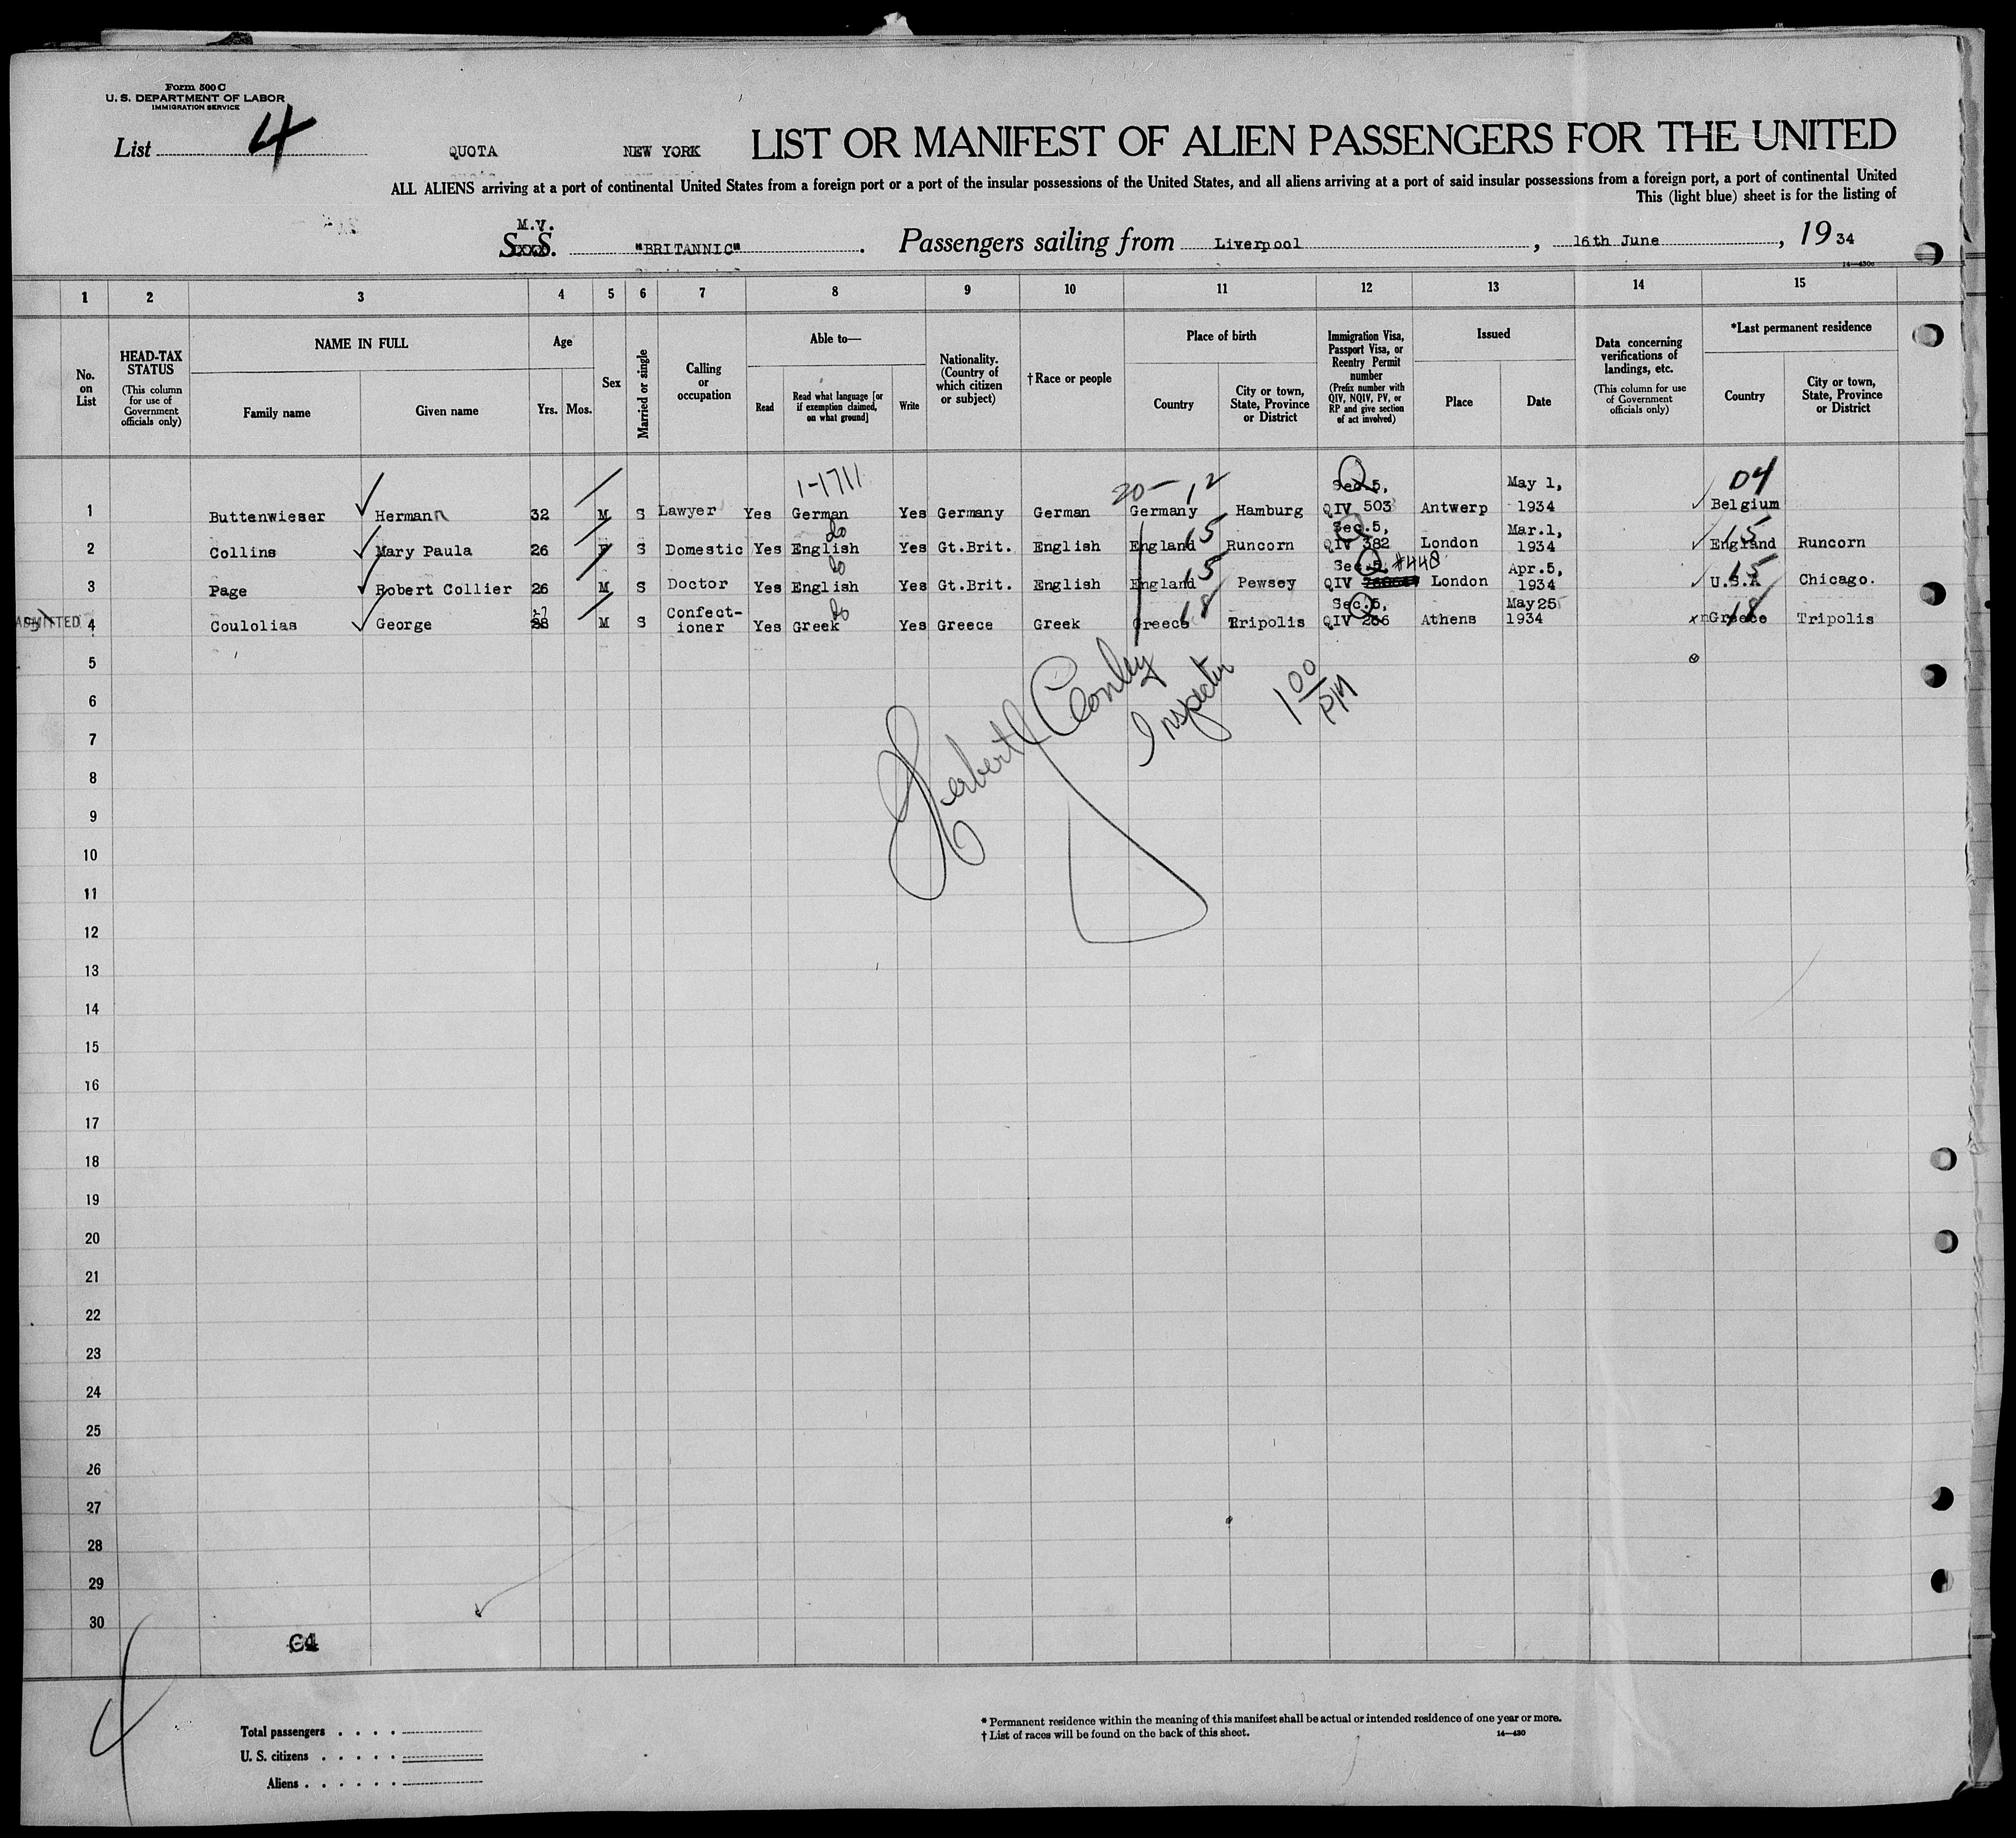 Form 500 C
U. S. DEPARTMENT OF LABOR
IMMIGRATION SERVICE
List 4
QUOTA NEW YORK LIST OR MANIFEST OF ALIEN PASSENGERS FOR THE UNITED
ALL ALIENS arriving at a port of continental United States from a foreign port or a port of the insular possessions of the United States, and all aliens arriving at a port of said insular possessions from a foreign port, a port of continental United
This (light blue) sheet is for the listing of
M.V.
S.S. "BRITANNIC". Passengers sailing from Liverpool, 16th June, 1934
14—430c
1 2 3 4 5 6 7 8 9 10 11 12 13 14 15
No. on List
HEAD-TAX STATUS (This column for use of Government officials only)
NAME IN FULL
Family name Given name
Age
Yrs. Mos.
Sex
Married or single
Calling or occupation
Able to—
Read
Read what language [or if exemption claimed, on what ground]
Write
Nationality. (Country of which citizen or subject)
†Race or people
Place of birth
Country
City or town, State, Province or District
Immigration Visa, Passport Visa, or Reentry Permit number (Prefix number with QIV, NQIV, PV, or RP and give section of act involved)
Issued
Place Date
Data concerning verifications of landings, etc. (This column for use of Government officials only)
*Last permanent residence
Country
City or town, State, Province or District
1-1711 20- 12 Q Sec.5, May 1, 04
1 Buttenwieser Hermann 32 M S Lawyer Yes German Yes Germany German Germany Hamburg QIV 503 Antwerp 1934 Belgium
do 15 Q Sec.5, Mar.1, 15
2 Collins Mary Paula 26 F S Domestic Yes English Yes Gt.Brit. English England Runcorn QIV 382 London 1934 England Runcorn
do 15 Q Sec.5, #448 Apr.5, 15
3 Page Robert Collier 26 M S Doctor Yes English Yes Gt.Brit. English England Pewsey QIV London 1934 U.S.A Chicago.
27 Confect- do 18 Q Sec.5, May 25 18
ADMITTED 4 Coulolias George 28 M S ioner Yes Greek Yes Greece Greek Greece Tripolis QIV 266 Athens 1934 Greece Tripolis
5
6
7
8
9
10
11
12
13
14
15
16
17
18
19
20
21
22
23
24
25
26
27
28
29
30
Inspector
1 00 PM
C4
4
Total passengers
U. S. citizens
Aliens
* Permanent residence within the meaning of this manifest shall be actual or intended residence of one year or more.
† List of races will be found on the back of this sheet.
14—430